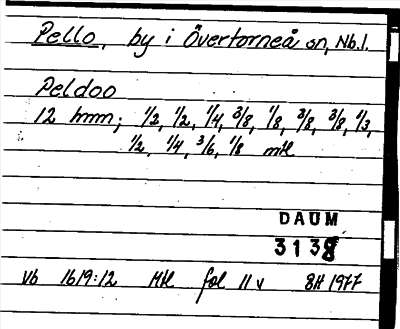 Pello, by i Övertorneå sn, Nb.l.
Peldoo
12 hmn; 1/2, 1/2, 1/4, 3/8, 1/8, 3/8, 3/8, 1/3,
1/2, 1/4, 3/6, 1/8 mtl
DAUM
3138
Vb 1619:12 Mtl fol 11 v BH 1977